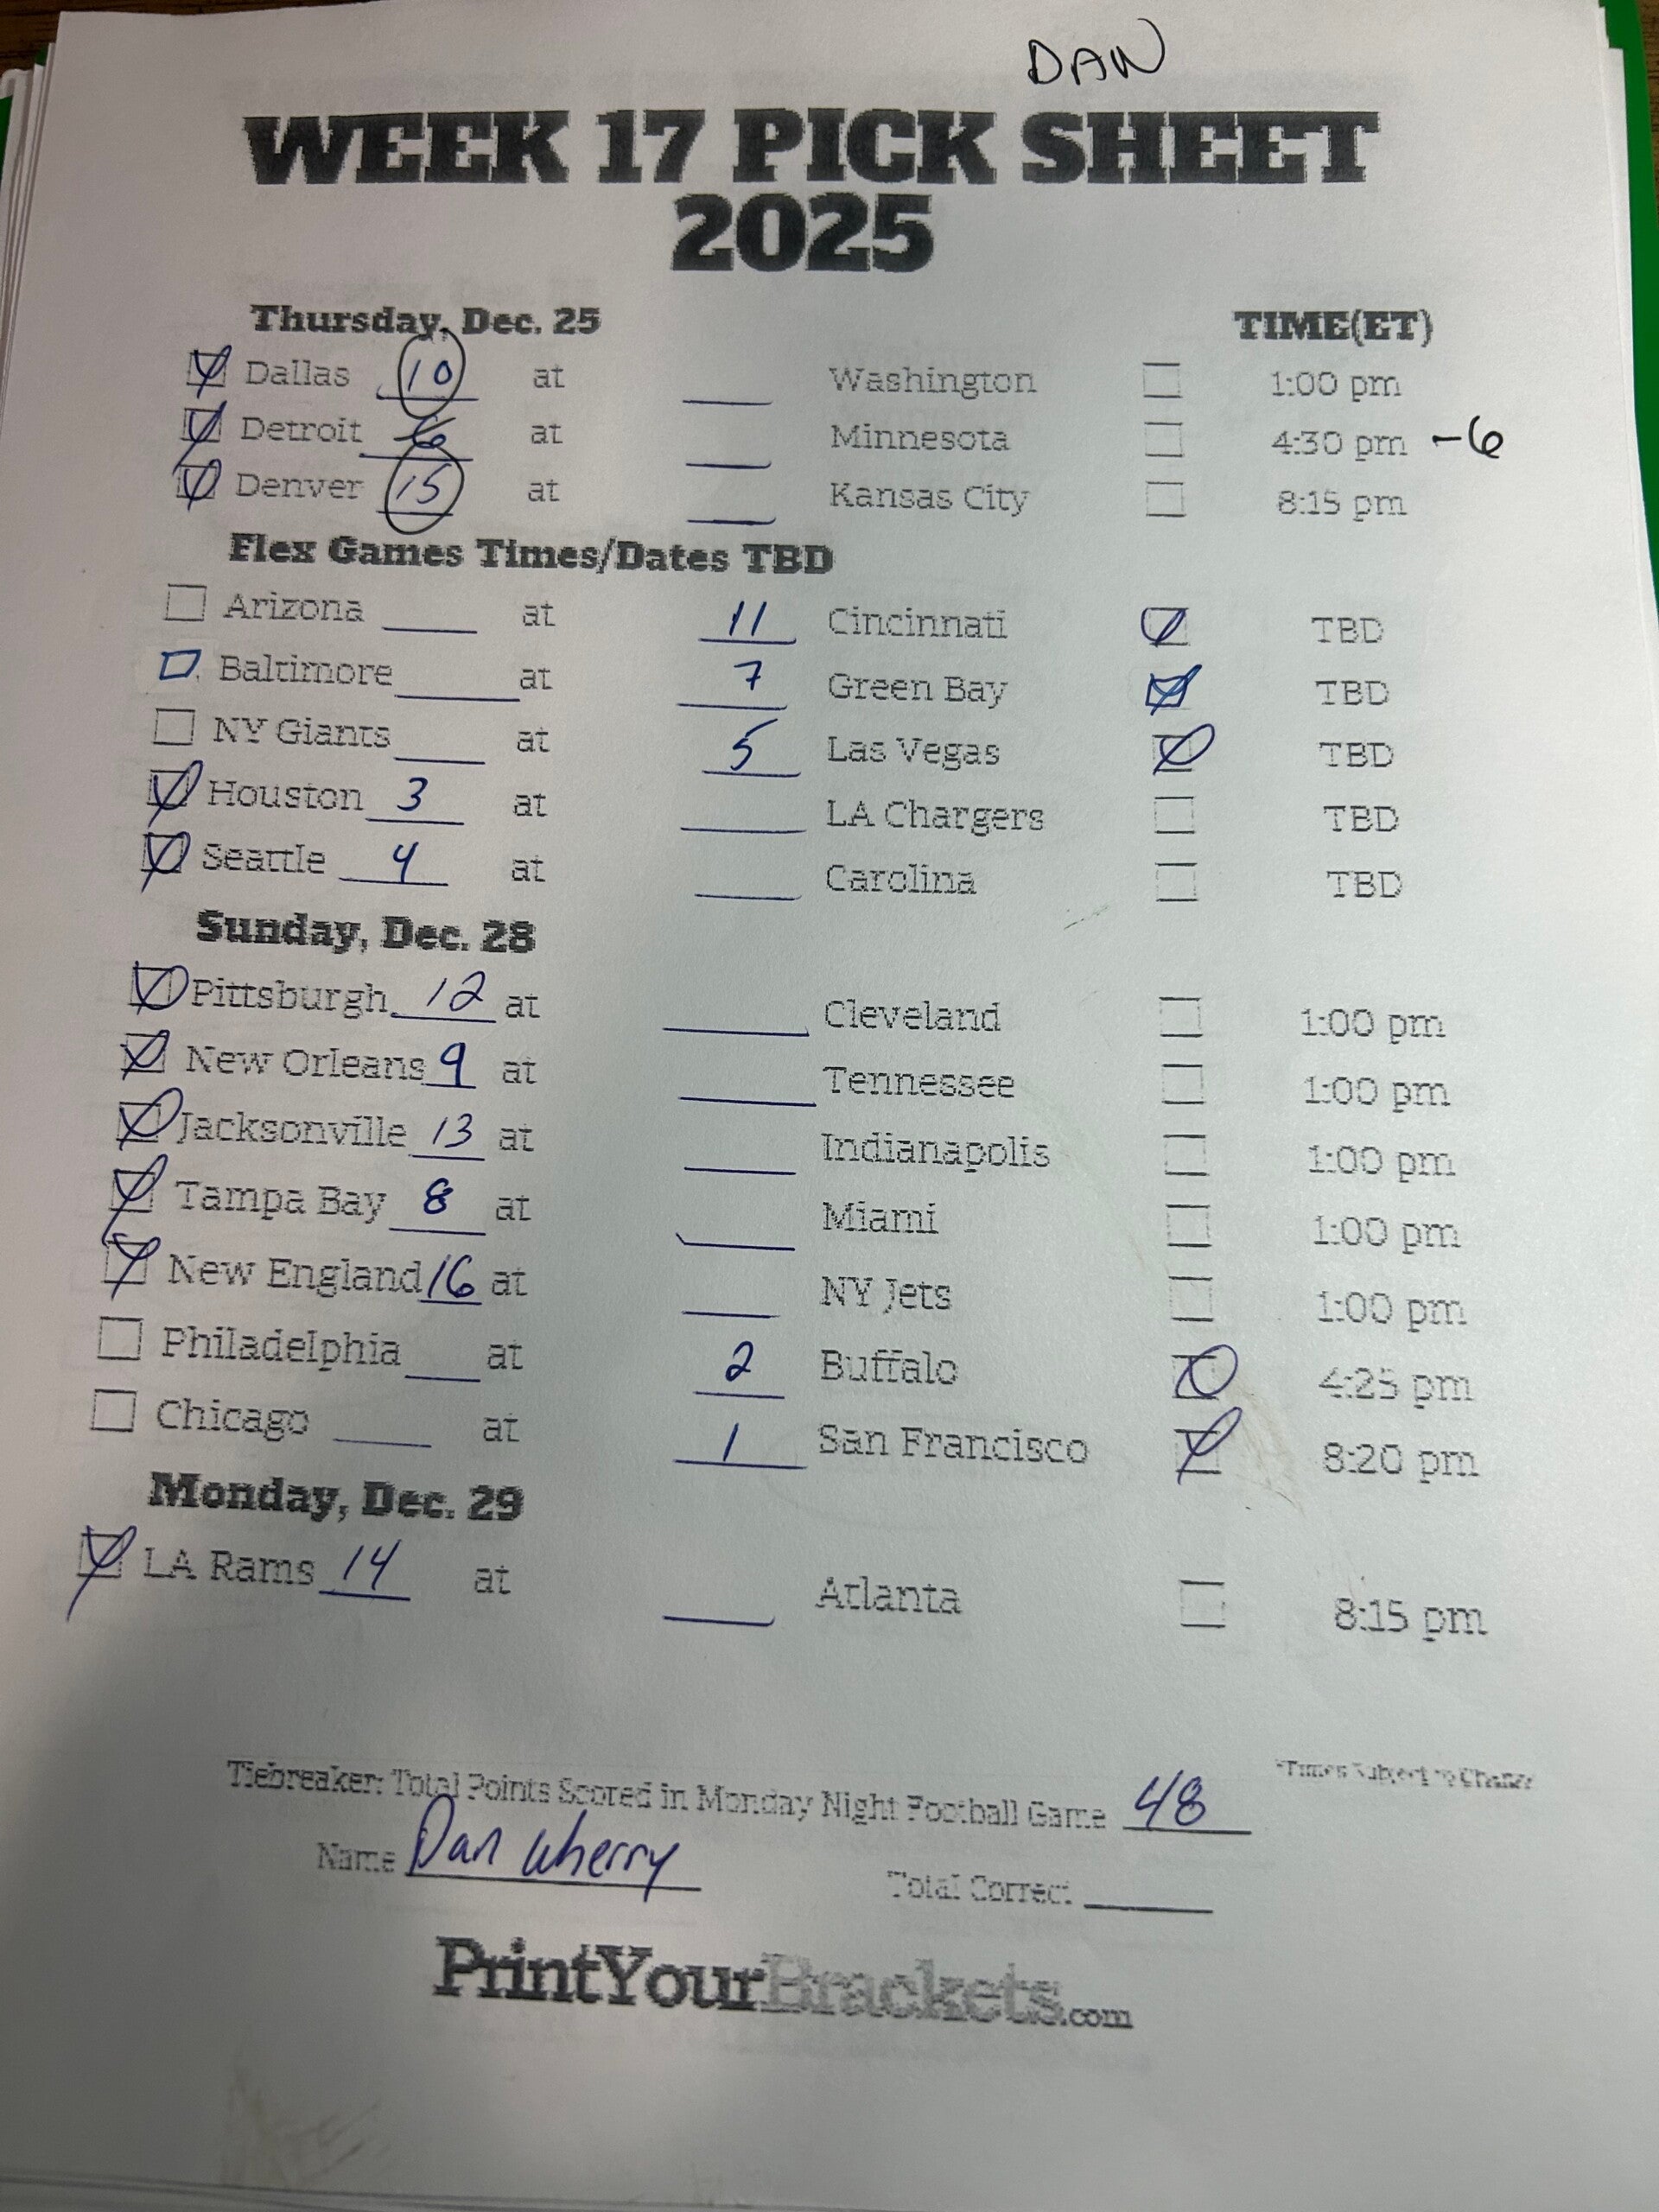 DAN
WEEK 17 PICK SHEET
2025
Thursday, Dec. 25 TIME(ET)
Dallas 10 at Washington 1:00 pm
Detroit 6 at Minnesota 4:30 pm -6
Denver 15 at Kansas City 8:15 pm
Flex Games Times/Dates TBD
Arizona at 11 Cincinnati TBD
Baltimore at 7 Green Bay TBD
NY Giants at 5 Las Vegas TBD
Houston 3 at LA Chargers TBD
Seattle 4 at Carolina TBD
Sunday, Dec. 28
Pittsburgh 12 at Cleveland 1:00 pm
New Orleans 9 at Tennessee 1:00 pm
Jacksonville 13 at Indianapolis 1:00 pm
Tampa Bay 8 at Miami 1:00 pm
New England 16 at NY Jets 1:00 pm
Philadelphia at 2 Buffalo 4:25 pm
Chicago at 1 San Francisco 8:20 pm
Monday, Dec. 29
LA Rams 14 at Atlanta 8:15 pm
*Times Subject to Change
Tiebreaker: Total Points Scored in Monday Night Football Game 48
Name Dan Wherry Total Correct
PrintYourBrackets.com